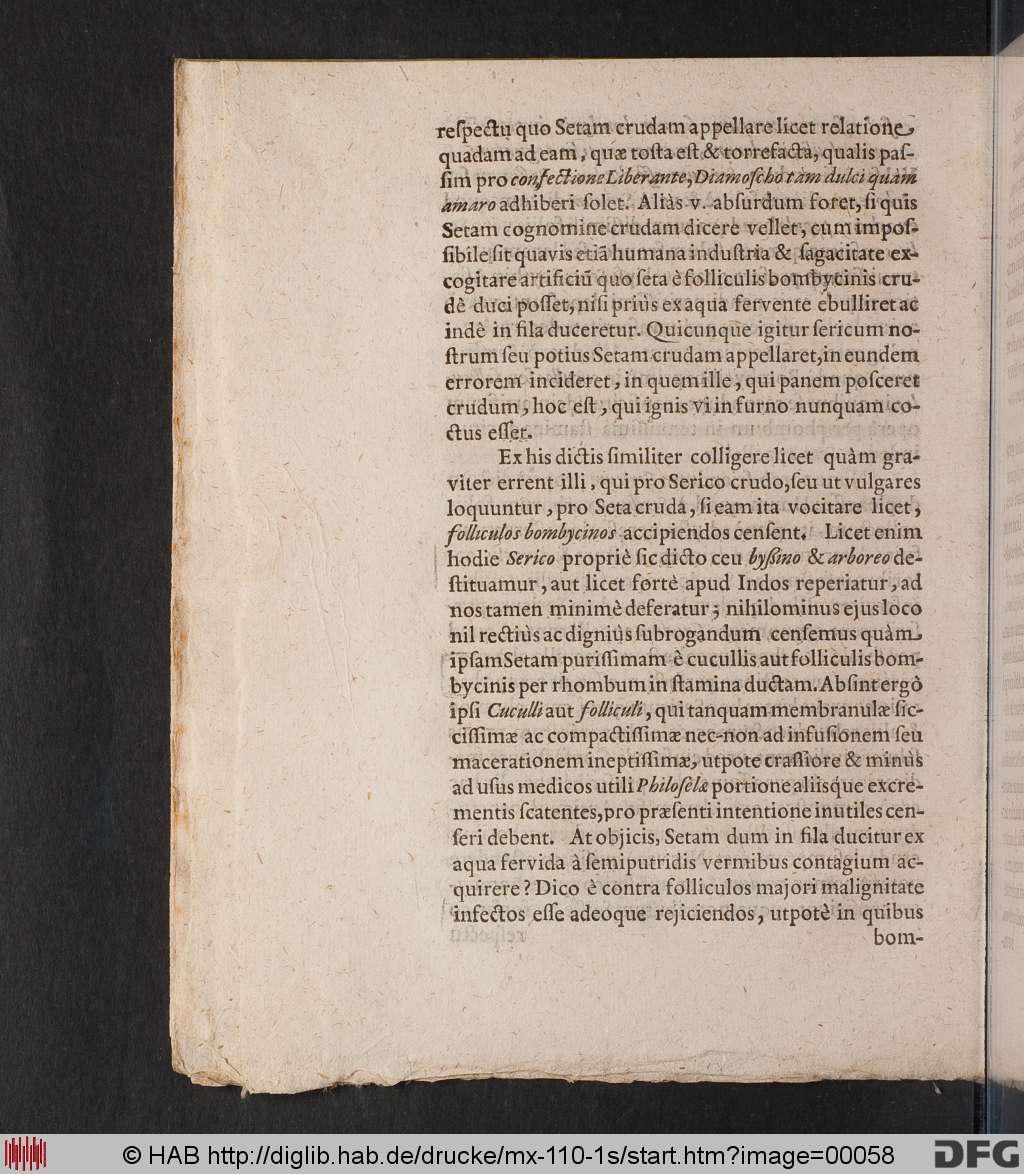 reſpectu quo Setam crudam appellare licet relatione
quadam ad eam, quæ toſta eſt & torrefacta, qualis paſ-
ſim pro confectione Liberante, Diamoſcho tàm dulci quàm
amaro adhiberi ſolet. Aliàs v. abſurdum foret, ſi quis
Setam cognomine crudam dicere vellet, cum impoſ-
ſibile ſit quavis etiã humana induſtria & ſagacitate ex-
cogitare artificiũ quo ſeta è folliculis bombycinis cru-
dè duci poſſet, niſi priùs ex aqua fervente ebulliret ac
indè in fila duceretur. Quicunque igitur ſericum no-
ſtrum ſeu potius Setam crudam appellaret, in eundem
errorem incideret, in quem ille, qui panem poſceret
crudum, hoc eſt, qui ignis vi in furno nunquam co-
ctus eſſet.
Ex his dictis ſimiliter colligere licet quàm gra-
viter errent illi, qui pro Serico crudo, ſeu ut vulgares
loquuntur, pro Seta cruda, ſi eam ita vocitare licet,
folliculos bombycinos accipiendos cenſent. Licet enim
hodie Serico propriè ſic dicto ceu byßino & arboreo de-
ſtituamur, aut licet fortè apud Indos reperiatur, ad
nos tamen minimè deferatur; nihilominus ejus loco
nil rectiùs ac digniùs ſubrogandum cenſemus quàm
ipſam Setam puriſſimam è cucullis aut folliculis bom-
bycinis per rhombum in ſtamina ductam. Abſint ergò
ipſi Cuculli aut folliculi, qui tanquam membranulæ ſic-
ciſſimæ ac compactiſſimæ nec-non ad infuſionem ſeu
macerationem ineptiſſimæ, utpote craſſiore & minùs
ad uſus medicos utili Philoſelæ portione aliisque excre-
mentis ſcatentes, pro præſenti intentione inutiles cen-
ſeri debent. At objicis, Setam dum in fila ducitur ex
aqua fervida à ſemiputridis vermibus contagium ac-
quirere? Dico è contra folliculos majori malignitate
infectos eſſe adeoque rejiciendos, utpotè in quibus
bom-
© HAB http://diglib.hab.de/drucke/mx-110-1s/start.htm?image=00058
DFG